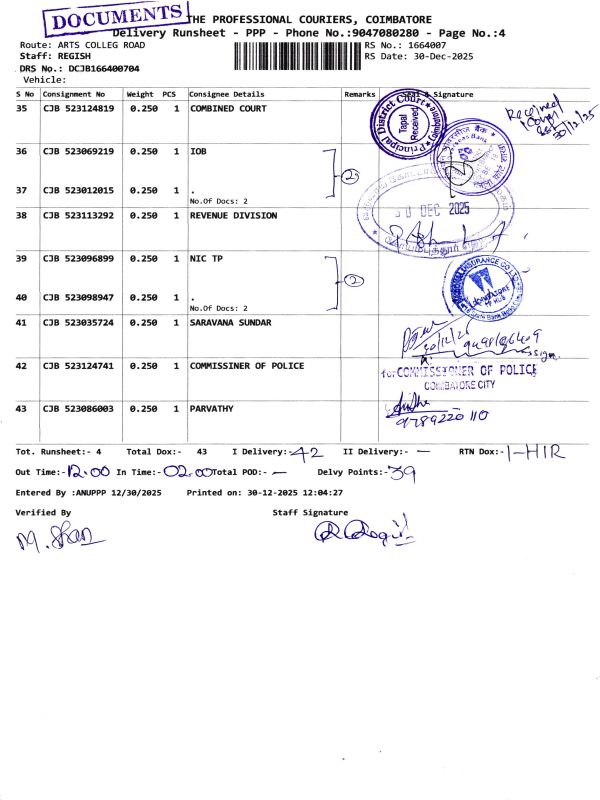 DOCUMENTS
THE PROFESSIONAL COURIERS, COIMBATORE
Delivery Runsheet - PPP - Phone No.:9047080280 - Page No.:4
Route: ARTS COLLEG ROAD
RS No.: 1664007
Staff: REGISH
RS Date: 30-Dec-2025
DRS No.: DCJB166400704
Vehicle:
S No Consignment No Weight PCS Consignee Details Remarks Seal & Signature
35 CJB 523124819 0.250 1 COMBINED COURT
Principal District Court Coimbatore
Tapal Received
Received
30/12/25
36 CJB 523069219 0.250 1 IOB
2
37 CJB 523012015 0.250 1 .
No.Of Docs: 2
38 CJB 523113292 0.250 1 REVENUE DIVISION
30 DEC 2025
39 CJB 523096899 0.250 1 NIC TP
2
40 CJB 523098947 0.250 1 .
No.Of Docs: 2
INSURANCE CO LTD
41 CJB 523035724 0.250 1 SARAVANA SUNDAR
30/12/25
42 CJB 523124741 0.250 1 COMMISSINER OF POLICE
for COMMISSIONER OF POLICE
COIMBATORE CITY
43 CJB 523086003 0.250 1 PARVATHY
9789220110
Tot. Runsheet:- 4 Total Dox:- 43 I Delivery:- 42 II Delivery:- — RTN Dox:- 1-HIR
Out Time:- 12.00 In Time:- 02.00 Total POD:- — Delvy Points:- 39
Entered By :ANUPPP 12/30/2025 Printed on: 30-12-2025 12:04:27
Verified By Staff Signature